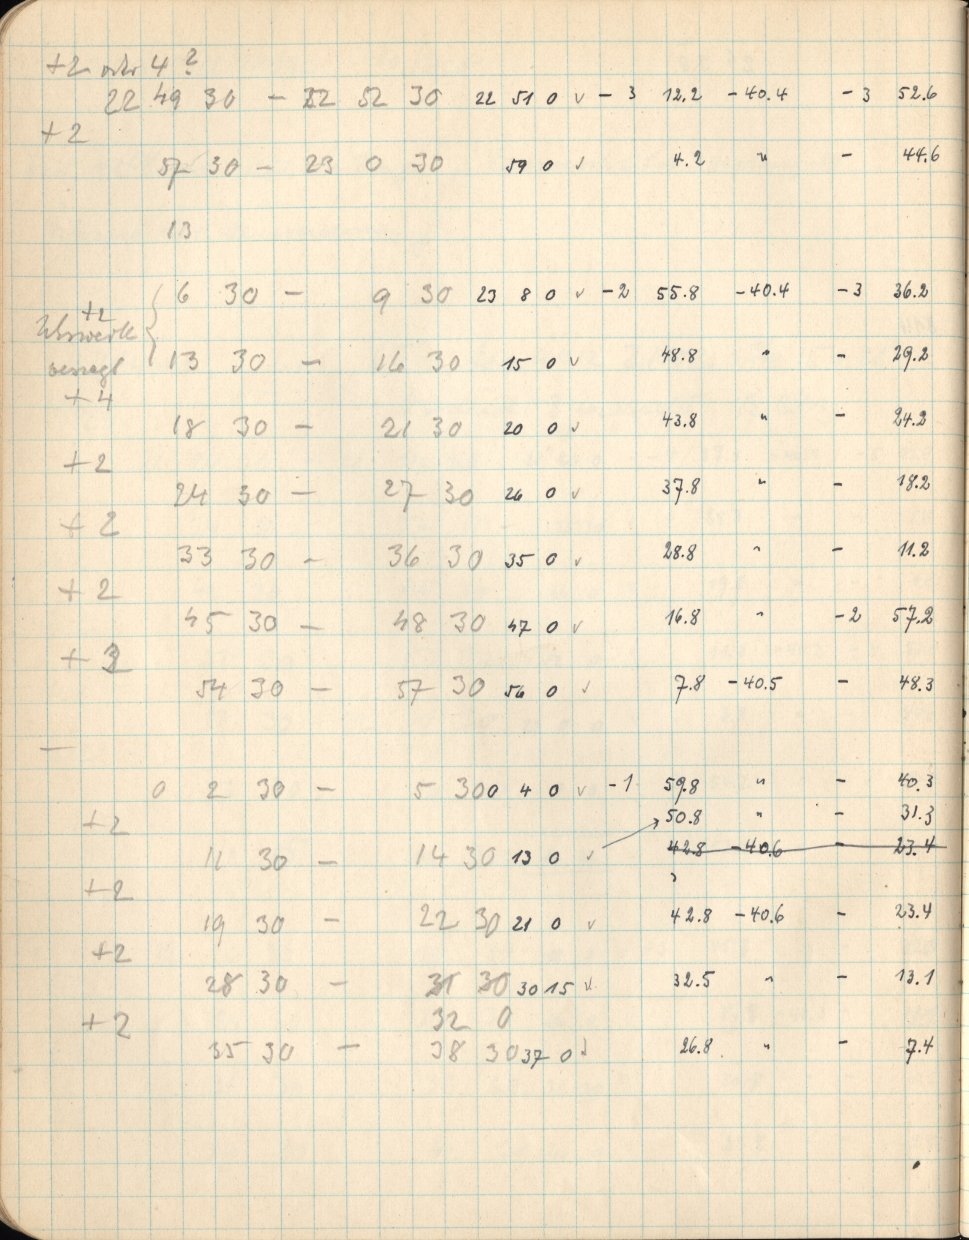 +2 oder 4?
22 49 30 – 22 52 30 22 51 0 √ – 3 12.2 –40.4 –3 52.6
+2
57 30 – 23 0 30 59 0 √ 4.2 " – 44.6
13
6 30 – 9 30 23 8 0 √ –2 55.8 –40.4 –3 36.2
+2
Uhrwerk
versagt 13 30 – 16 30 15 0 √ 48.8 " – 29.2
+4
18 30 – 21 30 20 0 √ 43.8 " – 24.2
+2
24 30 – 27 30 26 0 √ 37.8 " – 18.2
+2
33 30 – 36 30 35 0 √ 28.8 " – 11.2
+2
45 30 – 48 30 47 0 √ 16.8 " –2 57.2
+2
54 30 – 57 30 56 0 √ 7.8 –40.5 – 48.3
—
0 2 30 – 5 30 0 4 0 √ –1 59.8 " – 40.3
+2 50.8 " – 31.3
11 30 – 14 30 13 0 √ 42.8 –40.6 – 23.4
+2
19 30 – 22 30 21 0 √ 42.8 –40.6 – 23.4
+2
28 30 – 31 30 30 15 √ 32.5 " – 13.1
+2 32 0
35 30 – 38 30 37 0 √ 26.8 " – 7.4